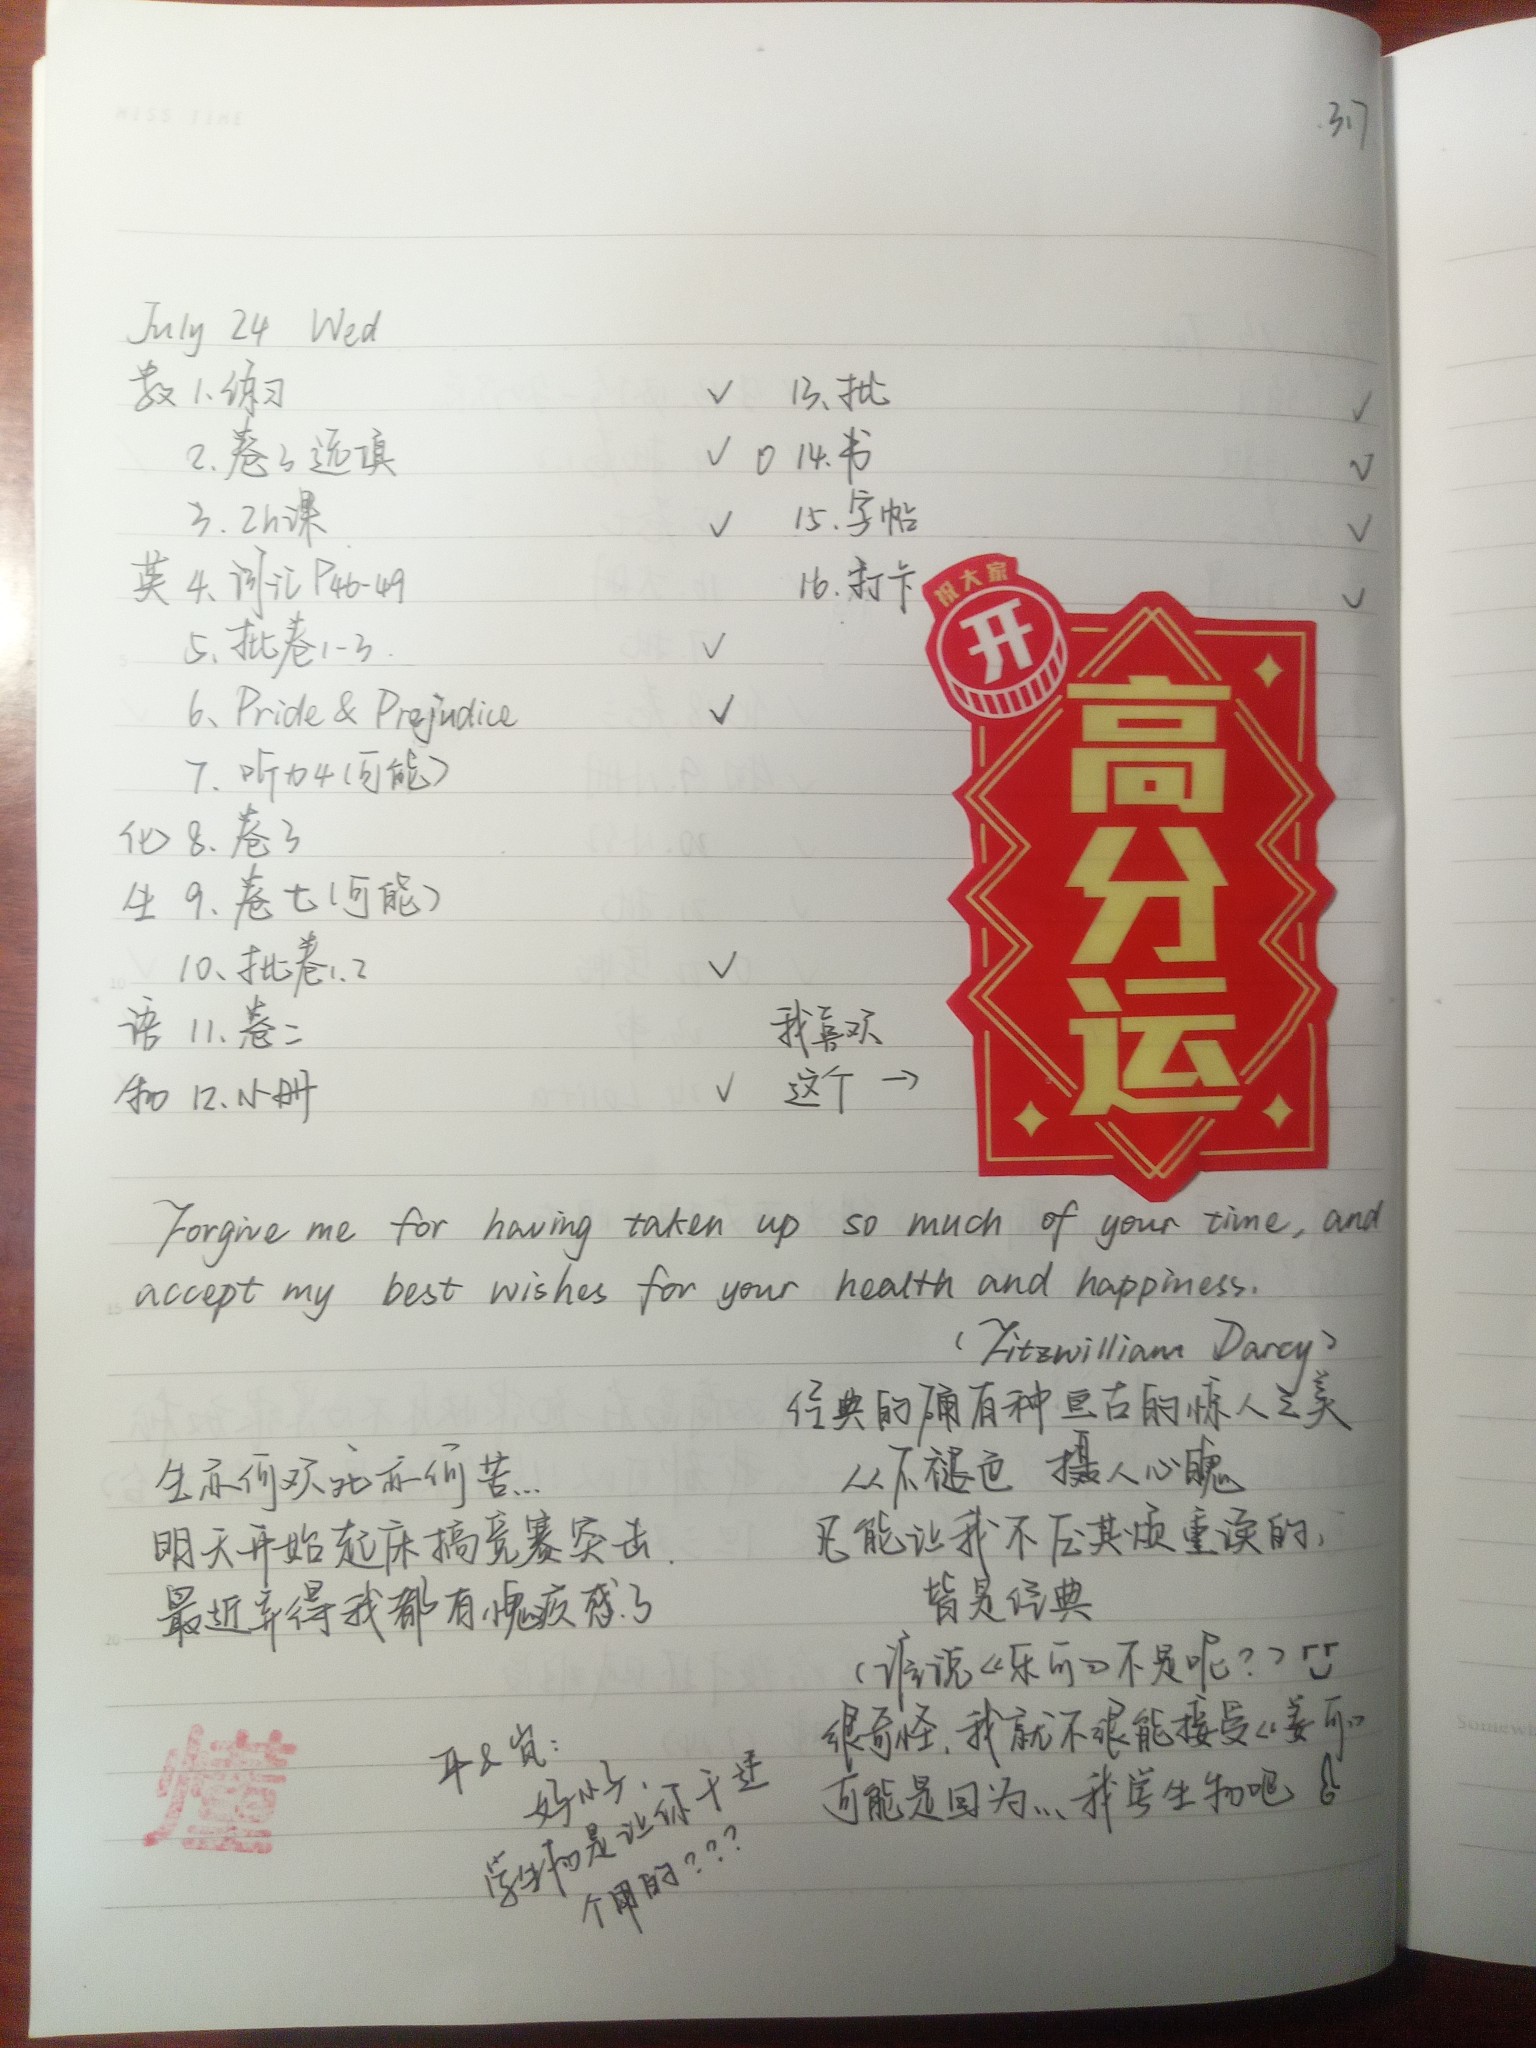 317
July 24 Wed
数 1.练习 ✓
2.卷3选填 ✓
3.2h课 ✓
英 4.词汇P46-49
5.批卷1-3. ✓
6.Pride & Prejudice ✓
7.听力4(可能)
化 8.卷3
生 9.卷七(可能)
10.批卷1.2 ✓
语 11.卷二
物 12.小册 ✓
13.批 ✓
14.书 ✓
15.字帖 ✓
16.打卡 ✓
祝大家
开
高分运
我喜欢
这个 →
Forgive me for having taken up so much of your time, and
accept my best wishes for your health and happiness.
(Fitzwilliam Darcy)
经典的确有种亘古的惊人之美
从不褪色 摄人心魄
凡能让我不厌其烦重读的,
皆是经典
(谁说《乐可》不是呢?)
很奇怪,我就不很能接受《姜可》
可能是因为...我学生物吧
生亦何欢死亦何苦...
明天开始起床搞竞赛突击.
最近弃得我都有愧疚感了
好小子,
学生物是让你干这
个用的???